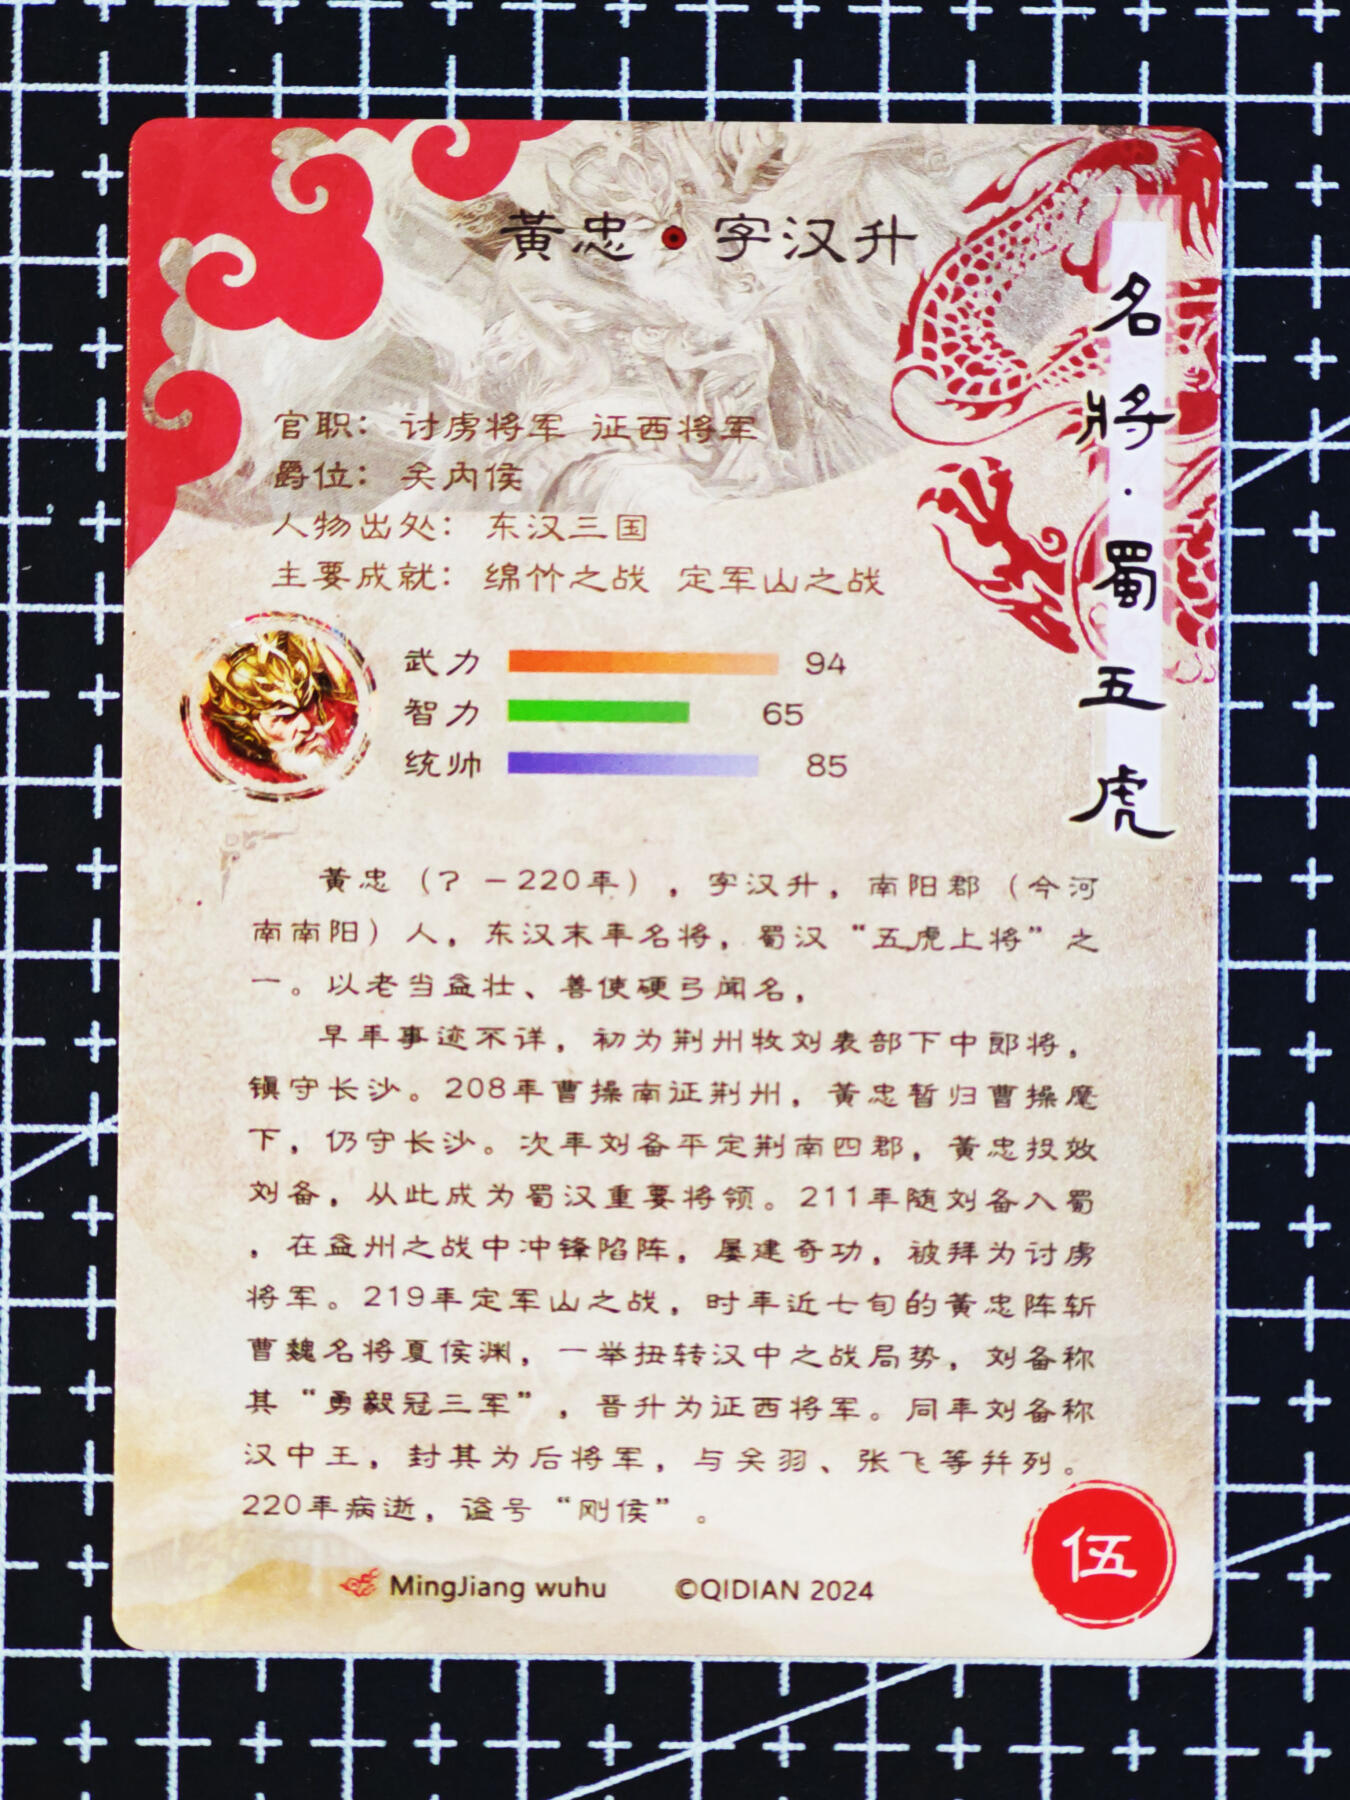 黄忠·字汉升
名将·蜀五虎
官职：讨虏将军 征西将军
爵位：关内侯
人物出处：东汉三国
主要成就：绵竹之战 定军山之战
武力 94
智力 65
统帅 85
黄忠（？－220年），字汉升，南阳郡（今河
南南阳）人，东汉末年名将，蜀汉“五虎上将”之
一。以老当益壮、善使硬弓闻名，
早年事迹不详，初为荆州牧刘表部下中郎将，
镇守长沙。208年曹操南征荆州，黄忠暂归曹操麾
下，仍守长沙。次年刘备平定荆南四郡，黄忠投效
刘备，从此成为蜀汉重要将领。211年随刘备入蜀
，在益州之战中冲锋陷阵，屡建奇功，被拜为讨虏
将军。219年定军山之战，时年近七旬的黄忠阵斩
曹魏名将夏侯渊，一举扭转汉中之战局势，刘备称
其“勇毅冠三军”，晋升为征西将军。同年刘备称
汉中王，封其为后将军，与关羽、张飞等并列。
220年病逝，谥号“刚侯”。
伍
MingJiang wuhu ©QIDIAN 2024